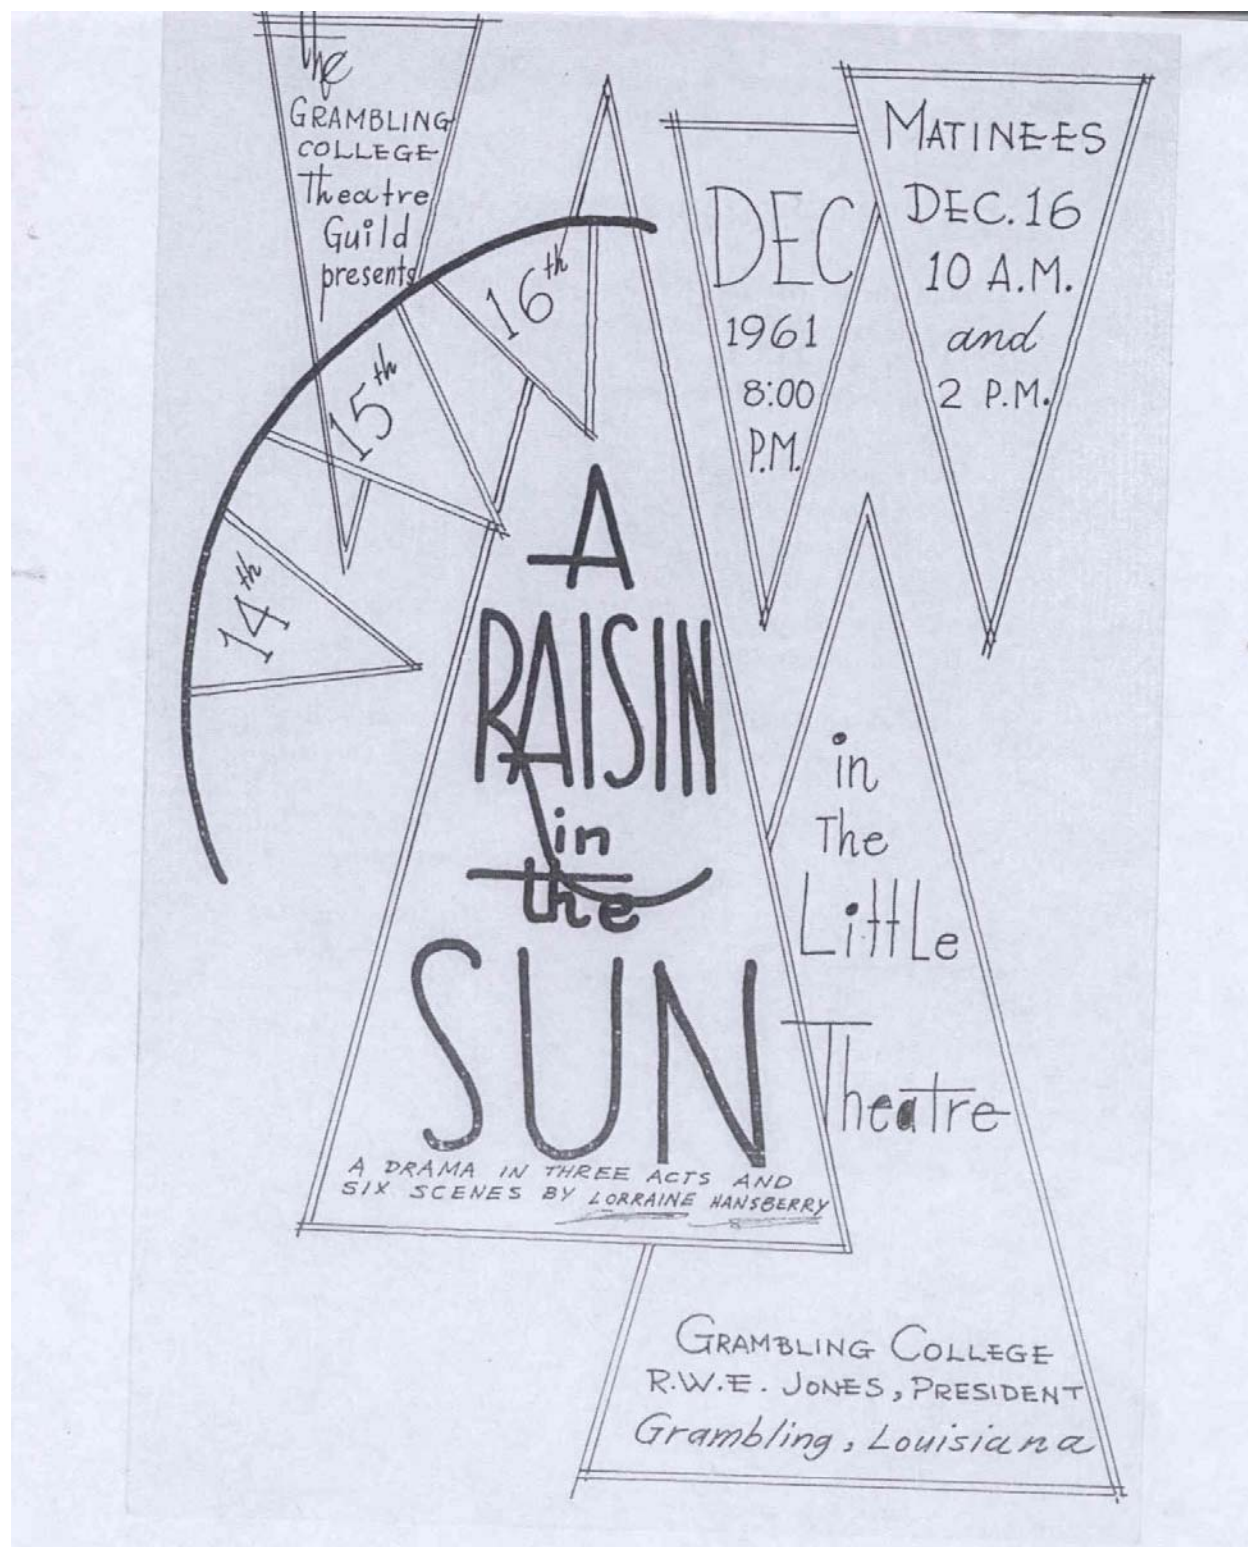 The
GRAMBLING
COLLEGE
Theatre
Guild
presents
14th
15th
16th
DEC
1961
8:00
P.M.
MATINEES
DEC. 16
10 A.M.
and
2 P.M.
A
RAISIN
in
the
SUN
A DRAMA IN THREE ACTS AND
SIX SCENES BY LORRAINE HANSBERRY
in
The
Little
Theatre
GRAMBLING COLLEGE
R.W.E. JONES, PRESIDENT
Grambling, Louisiana